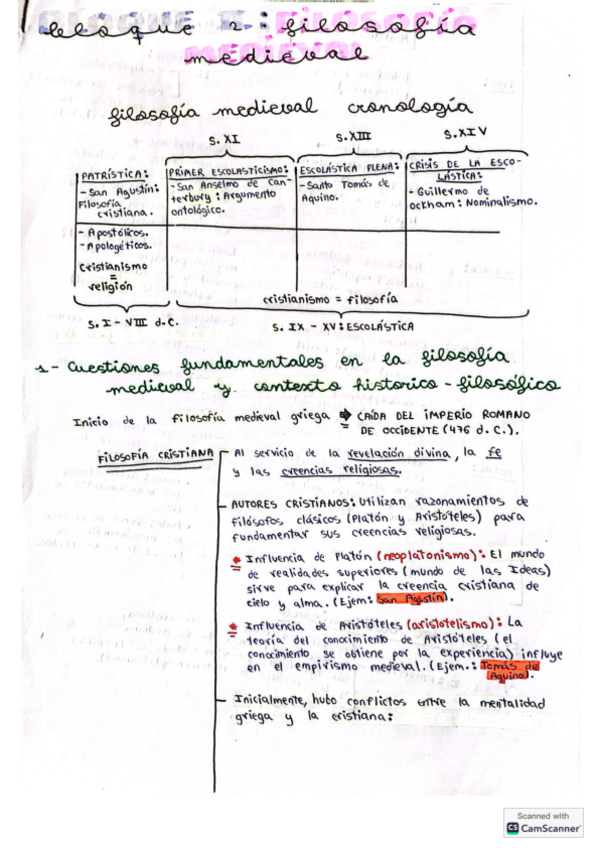 bloque 2: filosofía
medieval
filosofía medieval cronología
S. XI
S. XIII
S. XIV
PATRÍSTICA:
- San Agustín:
Filosofía
cristiana.
PRIMER ESCOLASTICISMO:
- San Anselmo de Can-
terbury: Argumento
ontológico.
ESCOLÁSTICA PLENA:
- Santo Tomás de
Aquino.
CRISIS DE LA ESCO-
LÁSTICA:
- Guillermo de
ockham: Nominalismo.
- Apostólicos.
- Apologéticos.
Cristianismo
=
religión
cristianismo = filosofía
S. I - VIII d.C.
S. IX - XV: ESCOLÁSTICA
1- Cuestiones fundamentales en la filosofía
medieval y contexto historico-filosófico
Inicio de la filosofía medieval griega ➔ CAÍDA DEL IMPERIO ROMANO
DE OCCIDENTE (476 d.C.).
FILOSOFÍA CRISTIANA
Al servicio de la revelación divina, la fe
y las creencias religiosas.
AUTORES CRISTIANOS: Utilizan razonamientos de
filósofos clásicos (Platón y Aristóteles) para
fundamentar sus creencias religiosas.
* Influencia de Platón (neoplatonismo): El mundo
de realidades superiores (mundo de las Ideas)
sirve para explicar la creencia cristiana de
cielo y alma. (Ejem: San Agustín).
* Influencia de Aristóteles (aristotelismo): La
teoría del conocimiento de Aristóteles (el
conocimiento se obtiene por la experiencia) influye
en el empirismo medieval. (Ejem.: Tomás de
Aquino).
Inicialmente, hubo conflictos entre la mentalidad
griega y la cristiana:
Scanned with
CS CamScanner